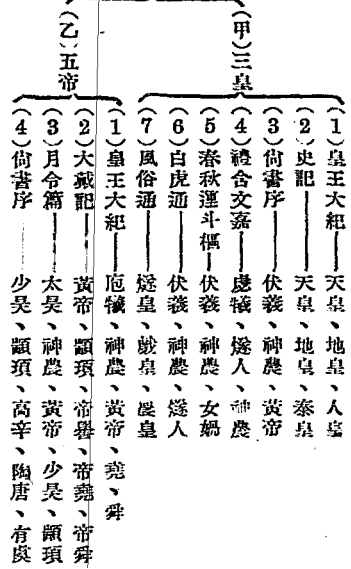 (甲)三皇
(1)皇王大紀——天皇、地皇、人皇
(2)史記——天皇、地皇、泰皇
(3)尙書序——伏羲、神農、黃帝
(4)禮含文嘉——虙犧、燧人、神農
(5)春秋運斗樞——伏羲、神農、女媧
(6)白虎通——伏羲、神農、燧人
(7)風俗通——燧皇、戲皇、農皇
(乙)五帝
(1)皇王大紀——庖犧、神農、黃帝、堯、舜
(2)大戴記——黃帝、顓頊、帝嚳、帝堯、帝舜
(3)月令篇——太昊、神農、黃帝、少昊、顓頊
(4)尙書序——少昊、顓頊、高辛、陶唐、有虞